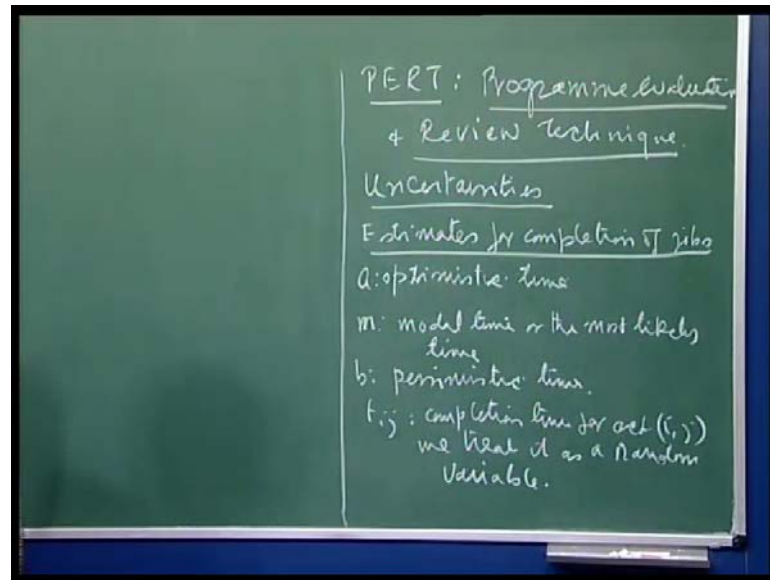 PERT: Programme Evaluation
& Review Technique.
Uncertainities
Estimates for completion of jobs
a: optimistic time
m: modal time or the most likely
time
b: pessimistic time.
tij: completion time for act (i, j)
we treat it as a Random
Variable.